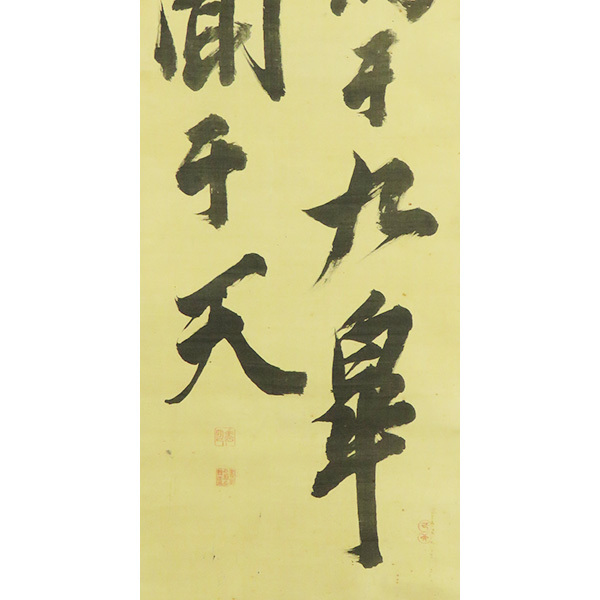 于九皐
聞于天